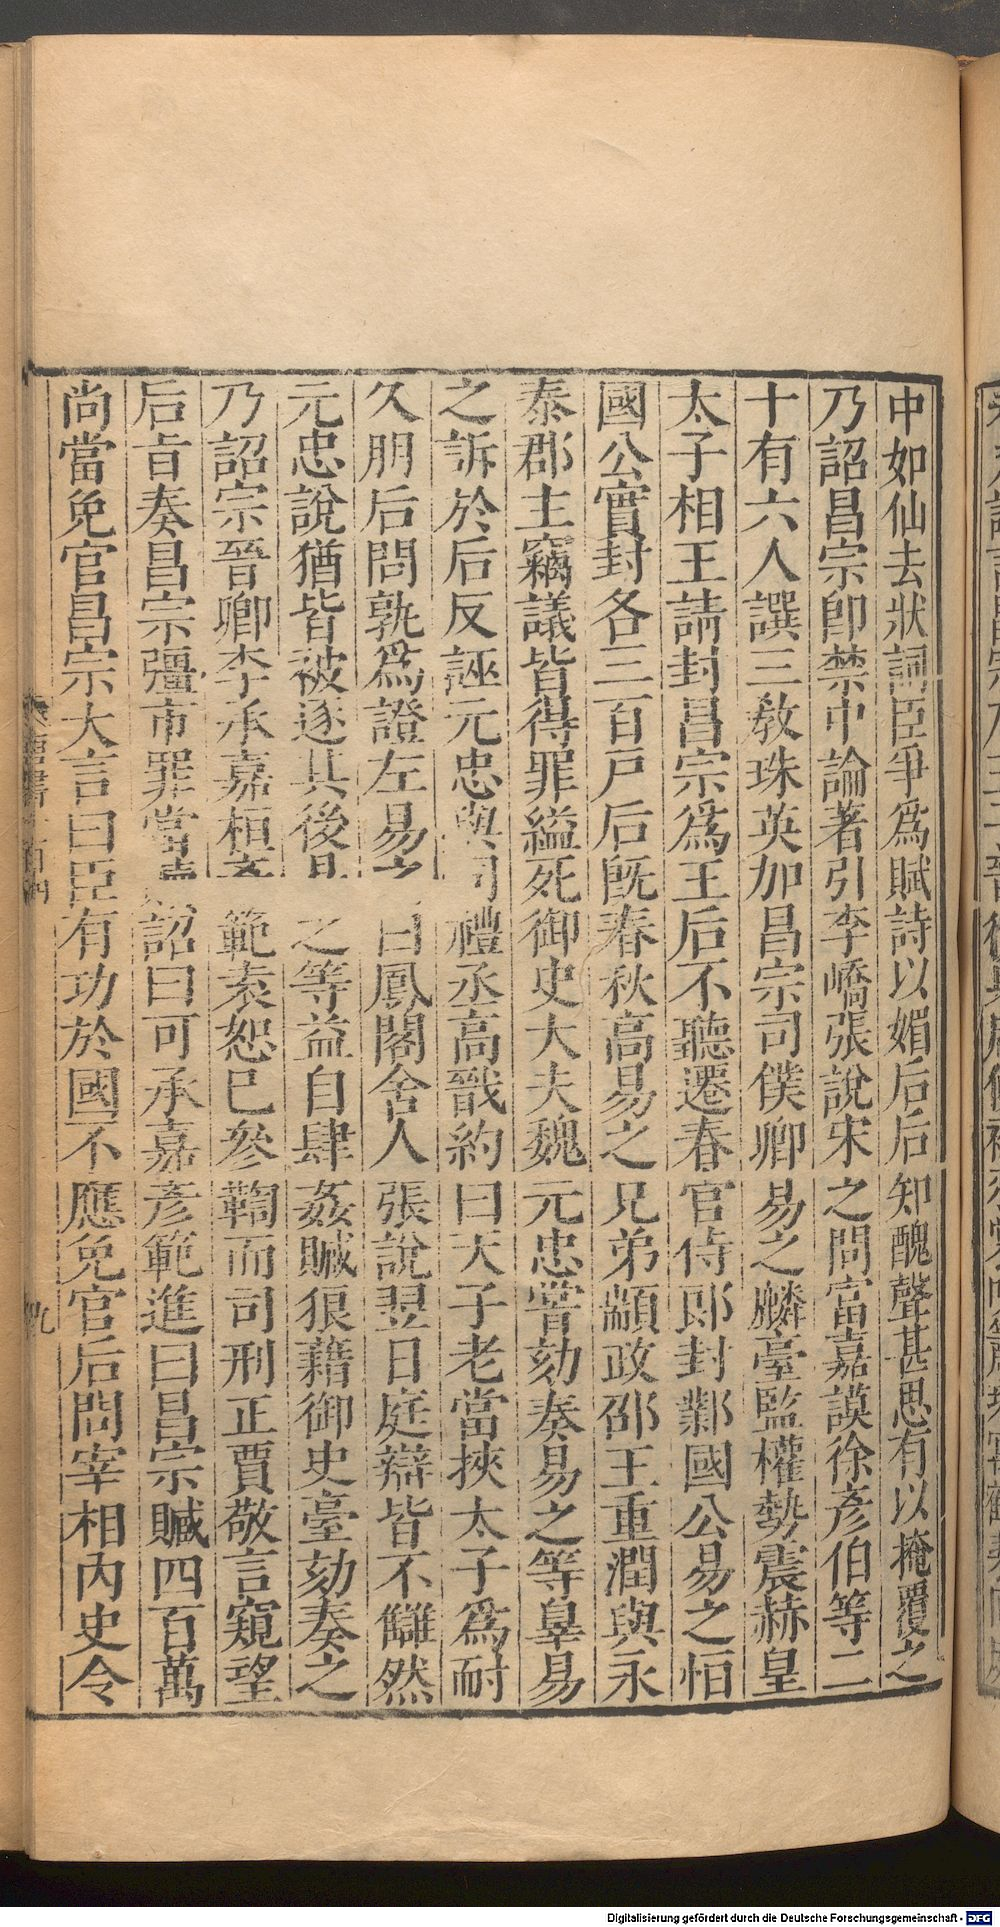 中如仙去狀詞臣爭爲賦詩以媚后后知醜聲甚思有以掩覆之
乃詔昌宗卽禁中論著引李嶠張說宋之問富嘉謨徐彥伯等二
十有六人譔三教珠英加昌宗司僕卿易之麟臺監權勢震赫皇
太子相王請封昌宗爲王后不聽遷春官侍郎封鄴國公易之恒
國公實封各三百戶后旣春秋高易之兄弟顓政邵王重潤與永
泰郡主竊議皆得罪縊死御史大夫魏元忠嘗劾奏易之等辠易
之訴於后反誣元忠與司禮丞高戩約曰天子老當挾太子爲耐
久朋后問孰爲證左易之曰鳳閣舍人張說翌日庭辯皆不讎然
元忠說猶皆被逐其後易之等益自肆姦贓狼藉御史臺劾奏之
乃詔宗晉卿李承嘉桓彥範袁恕巳參鞫而司刑正賈敬言窺望
后旨奏昌宗彊市罪當贖詔曰可承嘉彥範進曰昌宗贓四百萬
尚當免官昌宗大言曰臣有功於國不應免官后問宰相內史令
九
Digitalisierung gefördert durch die Deutsche Forschungsgemeinschaft - DFG